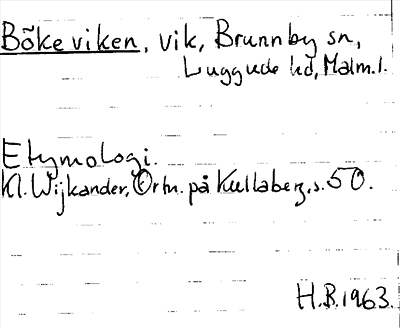 Bökeviken, vik, Brunnby sn,
Luggude hd, Malm. l.
Etymologi.
Kl. Wijkander, Ortn. på Kullaberg, s. 50.
H.R. 1963.